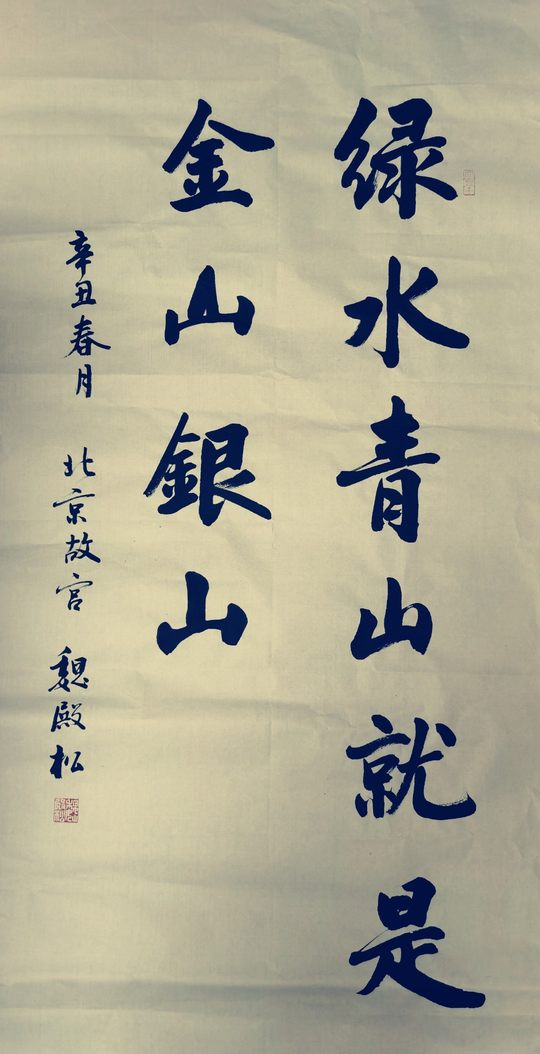 绿水青山就是
金山銀山
辛丑春月 北京故宫 魏殿松